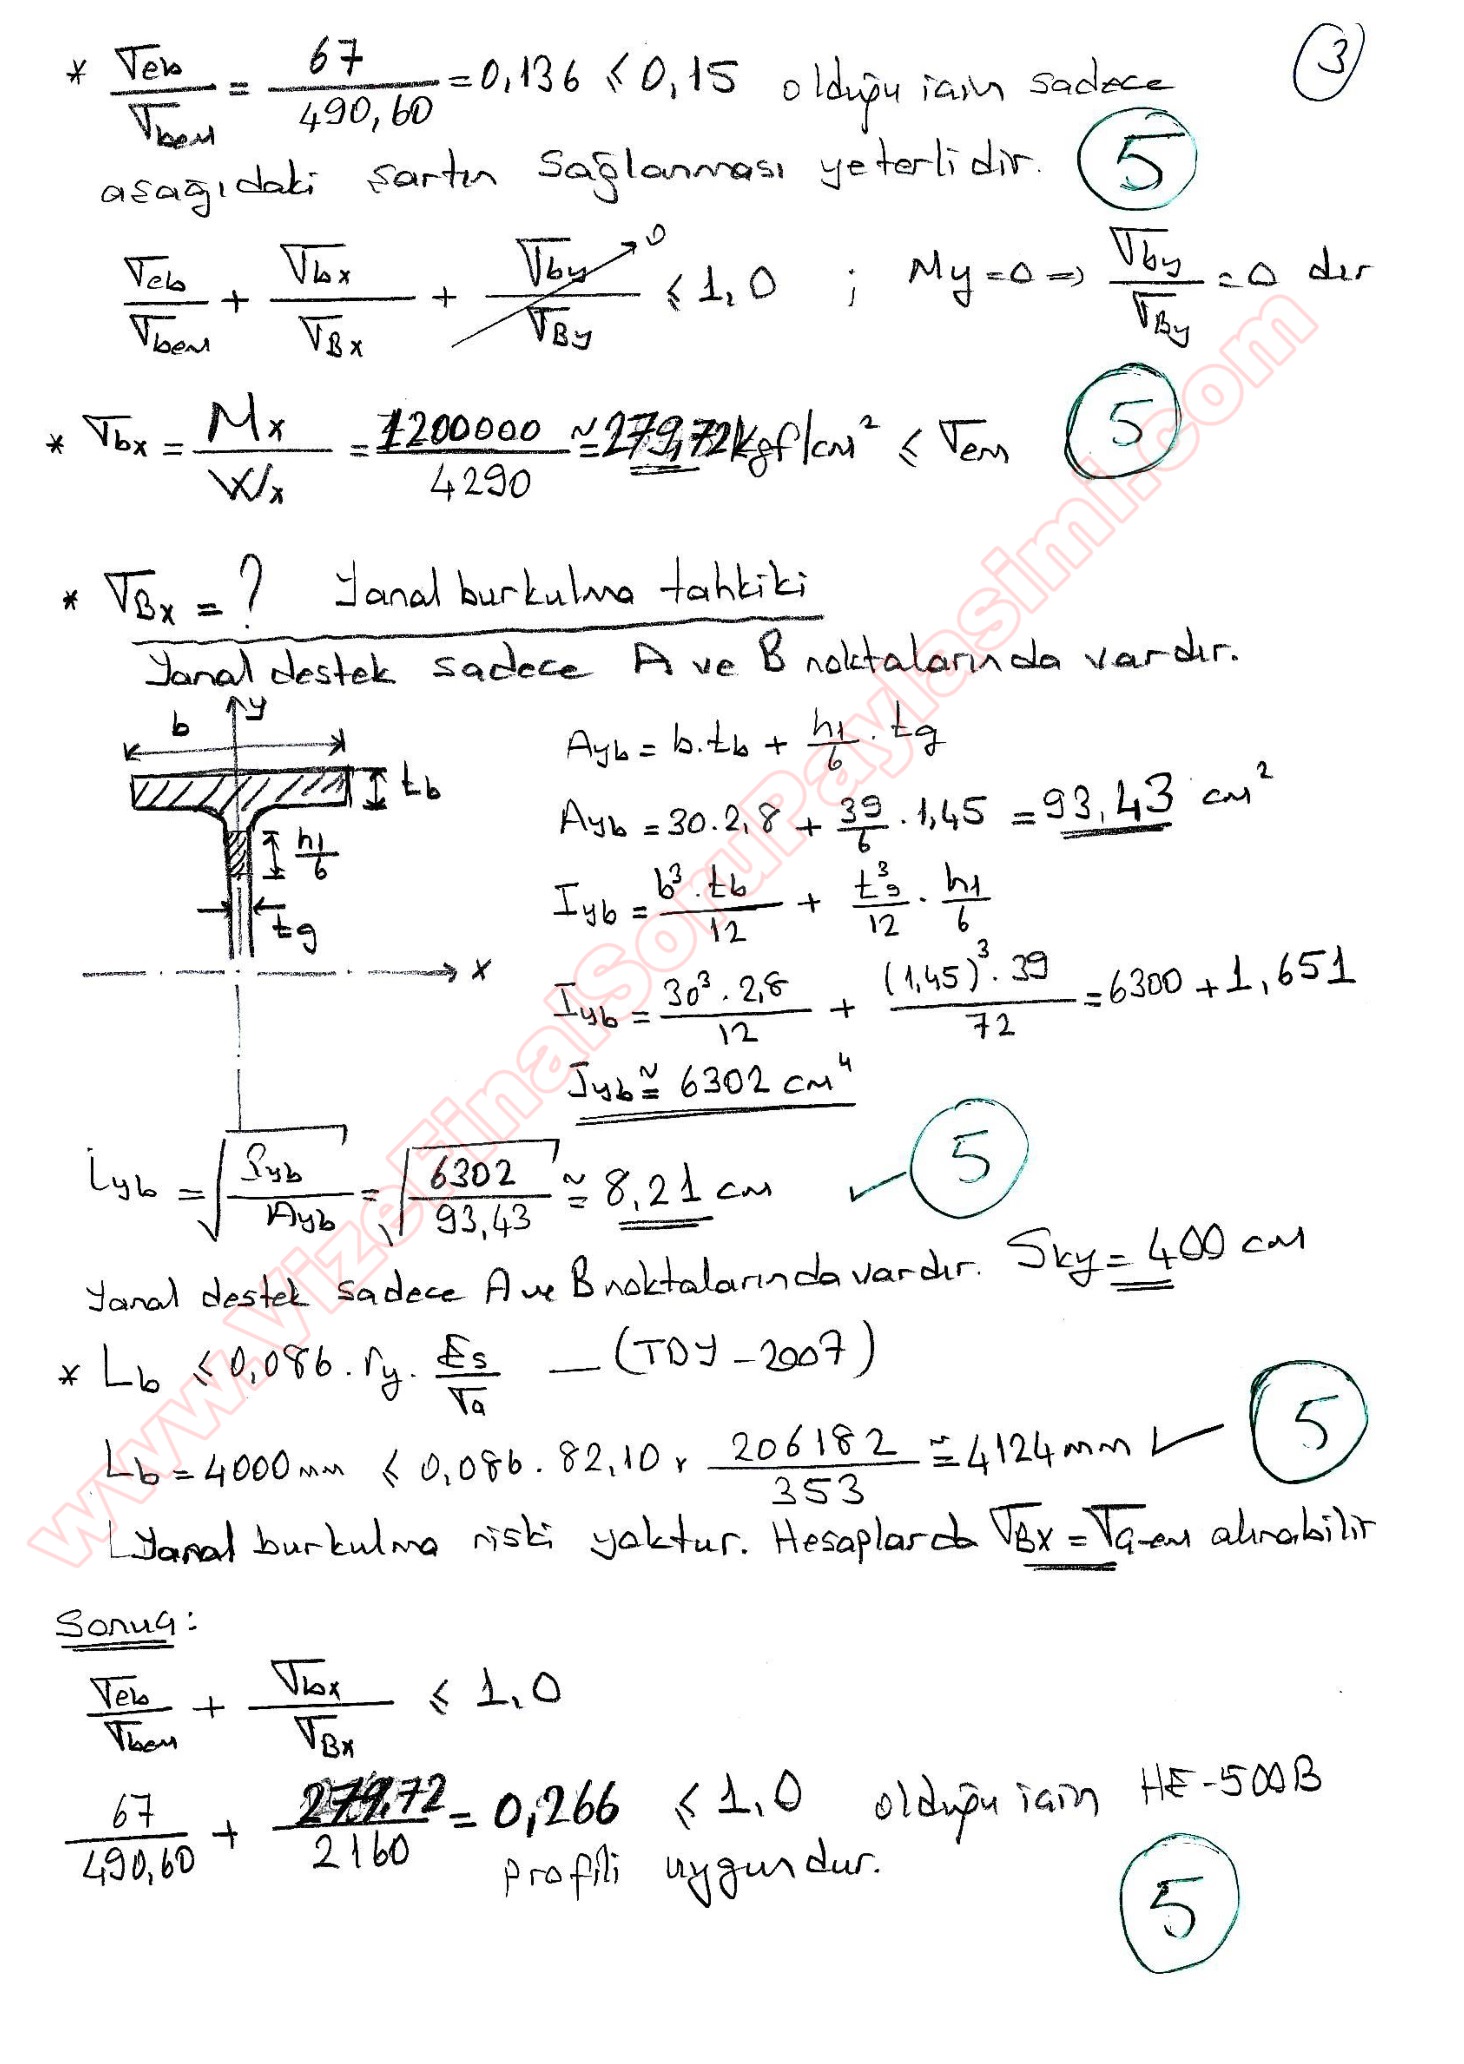 3
* σeb/σbem = 67/490,60 = 0,136 ≤ 0,15 olduğu için sadece
aşağıdaki şartın sağlanması yeterlidir. 5
σeb/σbem + σbx/σBx + σby/σBy → 0 ≤ 1,0 ; My=0 => σby/σBy = 0 dır
* σbx = Mx/Wx = 1200000/4290 ≅ 279,72 kgf/cm² ≤ σem 5
* σBx = ? Yanal burkulma tahkiki
Yanal destek sadece A ve B noktalarında vardır.
b
y
tb
h1/6
tg
x
Ayb = b.tb + h1/6 . tg
Ayb = 30.2,8 + 39/6 . 1,45 = 93,43 cm²
Iyb = b³.tb/12 + tg³/12 . h1/6
Iyb = 30³.2,8/12 + (1,45)³.39/72 = 6300 + 1,651
Iyb ≅ 6302 cm⁴
iyb = √(Iyb/Ayb) = √(6302/93,43) ≅ 8,21 cm ✓ 5
Yanal destek sadece A ve B noktalarında vardır. Sky = 400 cm
* Lb ≤ 0,086.ry.Es/σa — (TDY-2007)
Lb = 4000mm ≤ 0,086.82,10 x 206182/353 ≅ 4124mm ✓ 5
Yanal burkulma riski yoktur. Hesaplarda σBx = σa-em alınabilir
Sonuç:
σeb/σbem + σbx/σBx ≤ 1,0
67/490,60 + 279,72/2160 = 0,266 ≤ 1,0 olduğu için HE-500B
profili uygundur. 5
www.VizeFinalSoruPaylasimi.com